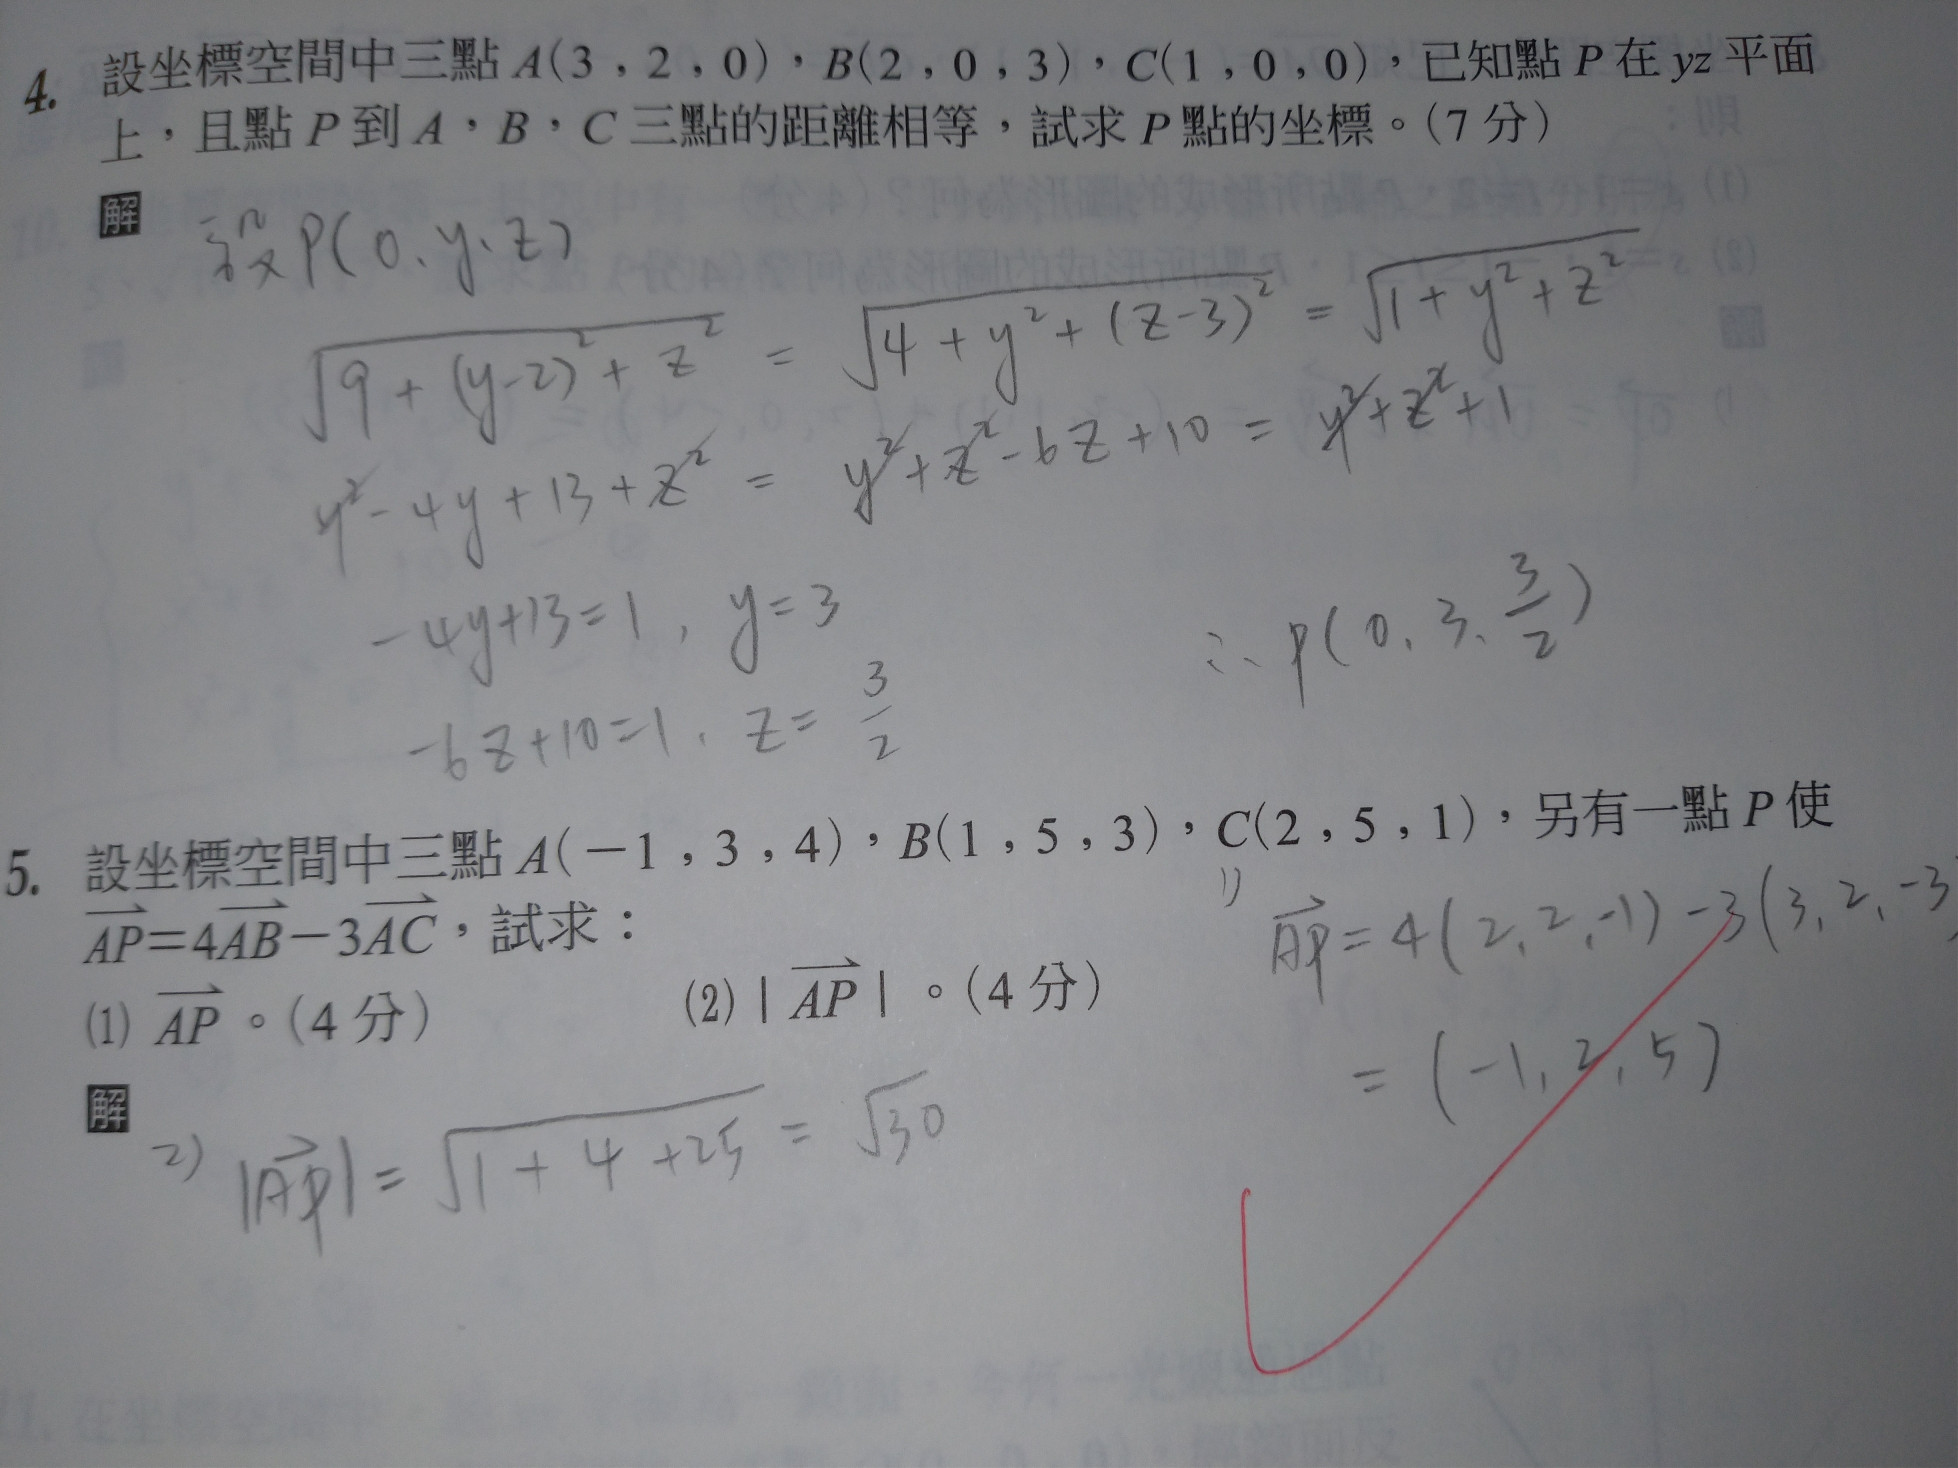 4. 設坐標空間中三點 A(3，2，0)，B(2，0，3)，C(1，0，0)，已知點 P 在 yz 平面
上，且點 P 到 A，B，C 三點的距離相等，試求 P 點的坐標。(7 分)
解
設 P(0、y、z)
√(9+(y-2)²+z²) = √(4+y²+(z-3)²) = √(1+y²+z²)
y²-4y+13+z² = y²+z²-6z+10 = y²+z²+1
-4y+13=1, y=3
∴ P(0、3、3/2)
-6z+10=1, z=3/2
5. 設坐標空間中三點 A(－1，3，4)，B(1，5，3)，C(2，5，1)，另有一點 P 使
AP＝4AB－3AC，試求：
(1) AP。(4 分) (2) | AP |。(4 分)
1) AP = 4(2,2,-1)-3(3,2,-3)
= (-1,2,5)
解
2) |AP| = √(1+4+25) = √30